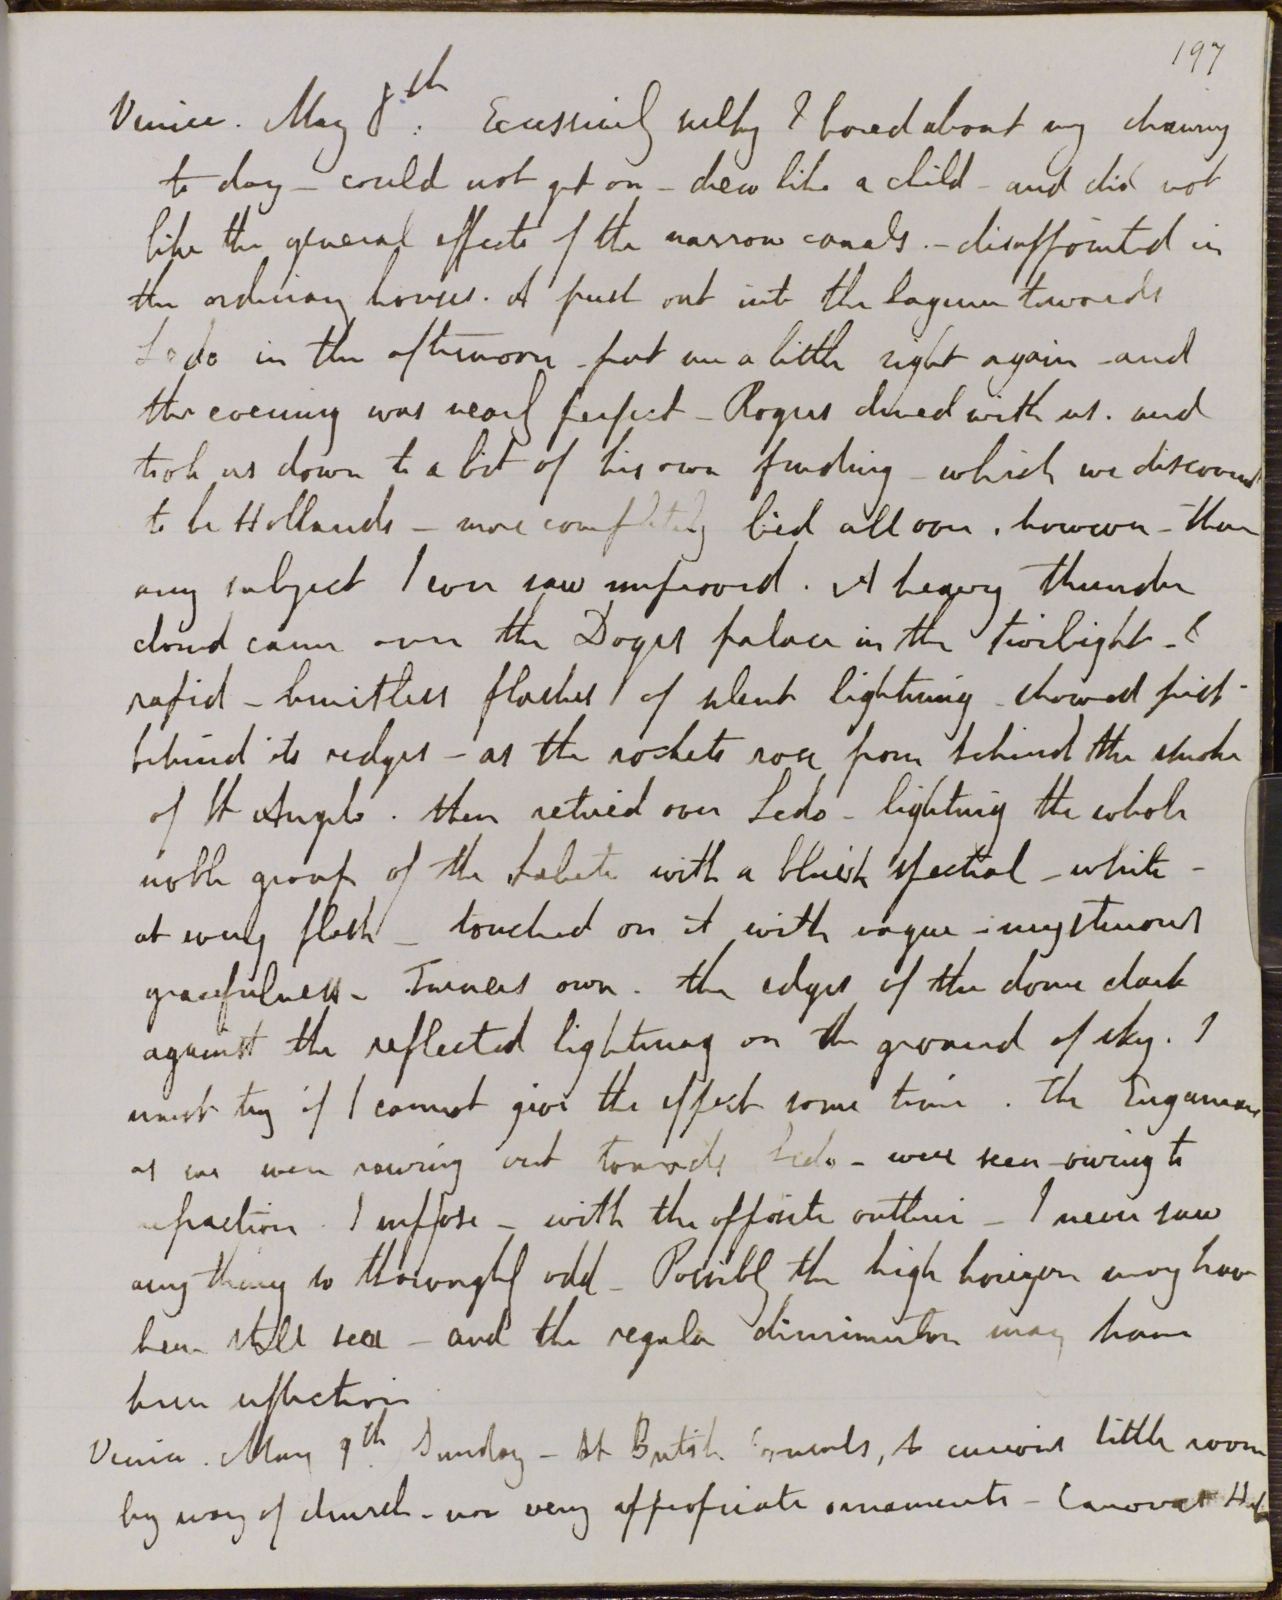 197
Venice. May 8th. Excessively sulky & bored about my drawing
to day - could not get on - drew like a child - and did not
like the general effects of the narrow canals. - disappointed in
the ordinary houses. A push out into the lagune towards
Lido in the afternoon - put me a little right again - and
the evening was nearly perfect - Rogers dined with us. and
took us down to a bit of his own finding - which we discovered
to be Hollands - more completely lied all over, however - than
any subject I ever saw improved. A heavy thunder
cloud came over the Doges palace in the twilight - &
rapid - limitless flashes of silent lightning - showed first -
behind its ridges - as the rockets rose from behind the smoke
of St Angelo. then retired over Lido - lighting the whole
noble group of the Salute with a bluish spectral - white -
at every flash - touched on it with vague - mysterious
gracefulness - Turners own. the edges of the dome dark
against the reflected lightning on the ground of sky. I
must try if I cannot give the effect some time. The Euganeans
as we were rowing out towards Lido - were seen - owing to
refraction. I suppose - with the opposite outline - I never saw
any thing so thoroughly odd - Possibly the high horizon may have
been still sea - and the regular diminution may have
been reflection
Venice. May 9th. Sunday - At British Consuls, A curious little room
by way of church - nor very appropriate ornaments - Canovas